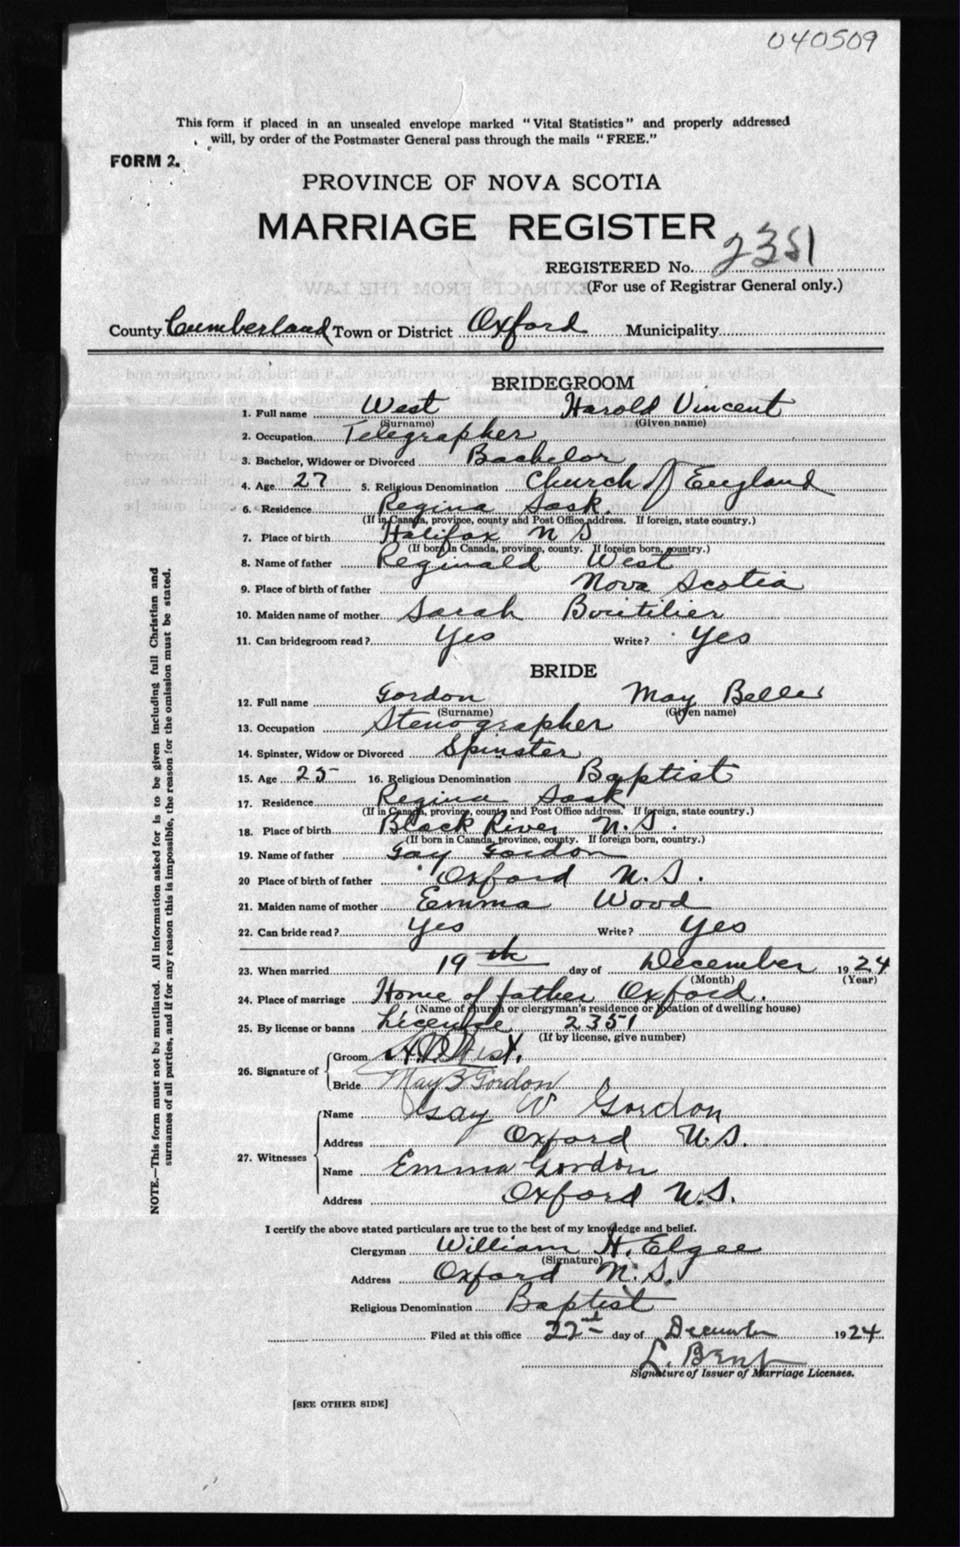 040509
This form if placed in an unsealed envelope marked "Vital Statistics" and properly addressed
will, by order of the Postmaster General pass through the mails "FREE."
FORM 2.
PROVINCE OF NOVA SCOTIA
MARRIAGE REGISTER
REGISTERED No. 2351
(For use of Registrar General only.)
County Cumberland Town or District Oxford Municipality
BRIDEGROOM
1. Full name West Harold Vincent
(Surname) (Given name)
2. Occupation Telegrapher
3. Bachelor, Widower or Divorced Bachelor
4. Age 27 5. Religious Denomination Church of England
6. Residence Regina Sask.
(If in Canada, province, county and Post Office address. If foreign, state country.)
7. Place of birth Halifax N S
(If born in Canada, province, county. If foreign born, country.)
8. Name of father Reginald West
9. Place of birth of father Nova Scotia
10. Maiden name of mother Sarah Boutilier
11. Can bridegroom read? Yes Write? Yes
BRIDE
12. Full name Gordon May Belle
(Surname) (Given name)
13. Occupation Stenographer
14. Spinster, Widow or Divorced Spinster
15. Age 25 16. Religious Denomination Baptist
17. Residence Regina Sask
(If in Canada, province, county and Post Office address. If foreign, state country.)
18. Place of birth Black River N.S.
(If born in Canada, province, county. If foreign born, country.)
19. Name of father Gay Gordon
20 Place of birth of father Oxford N.S.
21. Maiden name of mother Emma Wood
22. Can bride read? Yes Write? Yes
23. When married 19th day of December 1924
(Month) (Year)
24. Place of marriage Home of father Oxford.
(Name of church or clergyman's residence or location of dwelling house)
25. By license or banns License 2351
(If by license, give number)
26. Signature of
Groom H.V. West.
Bride May B Gordon
27. Witnesses
Name Gay W Gordon
Address Oxford N.S.
Name Emma Gordon
Address Oxford N.S.
I certify the above stated particulars are true to the best of my knowledge and belief.
Clergyman William H. Elgee
(Signature)
Address Oxford N.S.
Religious Denomination Baptist
Filed at this office 22nd day of December 1924
L. Bent
Signature of Issuer of Marriage Licenses.
[SEE OTHER SIDE]
NOTE.—This form must not be mutilated. All information asked for is to be given including full Christian and
surnames of all parties, and if for any reason this is impossible, the reason for the omission must be stated.